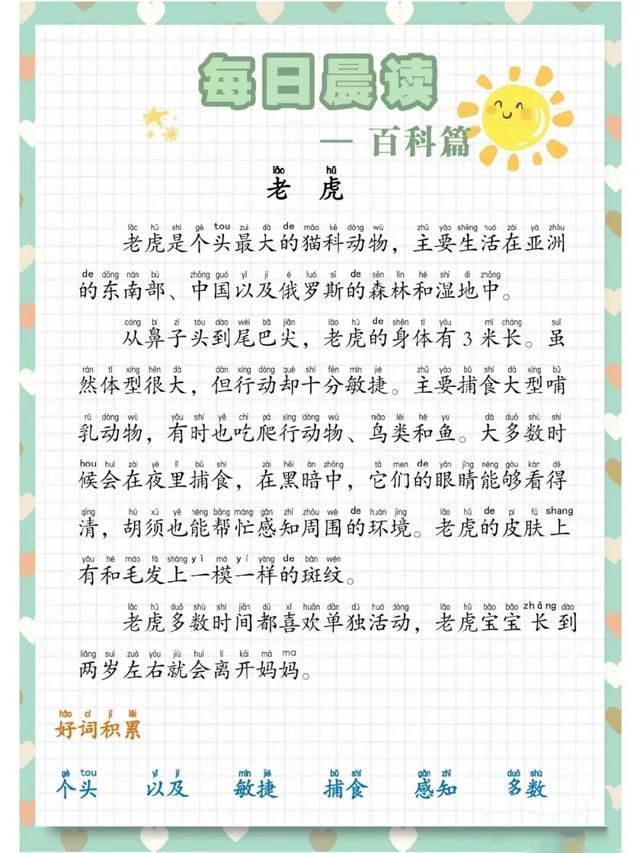 每日晨读
— 百科篇
lǎo hǔ
老 虎
lǎo hǔ shì gè tou zuì dà de māo kē dòng wù zhǔ yào shēng huó zài yà zhōu
老虎是个头最大的猫科动物，主要生活在亚洲
de dōng nán bù zhōng guó yǐ jí é luó sī de sēn lín hé shī dì zhōng
的东南部、中国以及俄罗斯的森林和湿地中。
cóng bí zi tóu dào wěi bā jiān lǎo hǔ de shēn tǐ yǒu mǐ cháng suī
从鼻子头到尾巴尖，老虎的身体有3米长。虽
rán tǐ xíng hěn dà dàn xíng dòng què shí fēn mǐn jié zhǔ yào bǔ shí dà xíng bǔ
然体型很大，但行动却十分敏捷。主要捕食大型哺
rǔ dòng wù yǒu shí yě chī pá xíng dòng wù niǎo lèi hé yú dà duō shù shí
乳动物，有时也吃爬行动物、鸟类和鱼。大多数时
hou huì zài yè lǐ bǔ shí zài hēi àn zhōng tā men de yǎn jīng néng gòu kàn dé
候会在夜里捕食，在黑暗中，它们的眼睛能够看得
qīng hú xū yě néng bāng máng gǎn zhī zhōu wéi de huán jìng lǎo hǔ de pí fū shang
清，胡须也能帮忙感知周围的环境。老虎的皮肤上
yǒu hé máo fà shàng yì mó yí yàng de bān wén
有和毛发上一模一样的斑纹。
lǎo hǔ duō shù shí jiān dōu xǐ huān dān dú huó dòng lǎo hǔ bǎo bǎo zhǎng dào
老虎多数时间都喜欢单独活动，老虎宝宝长到
liǎng suì zuǒ yòu jiù huì lí kāi mā ma
两岁左右就会离开妈妈。
hǎo cí jī lěi
好词积累
gè tou yǐ jí mǐn jié bǔ shí gǎn zhī duō shù
个头 以及 敏捷 捕食 感知 多数